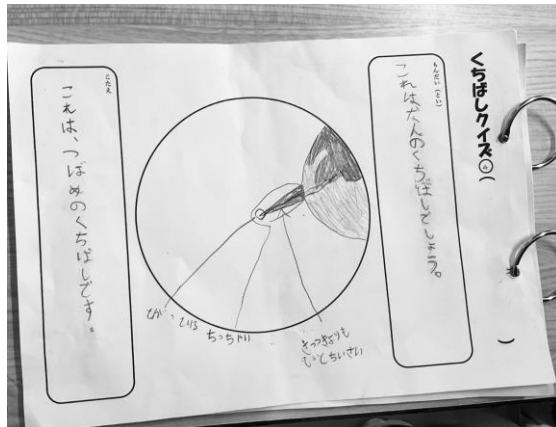 くちばしクイズ④(
)
もんだい(とい)
これは、なんのくちばしでしょう。
とがっている
ちっちゃい
きつつきよりも
もっとちいさい
こたえ
これは、つばめのくちばしです。